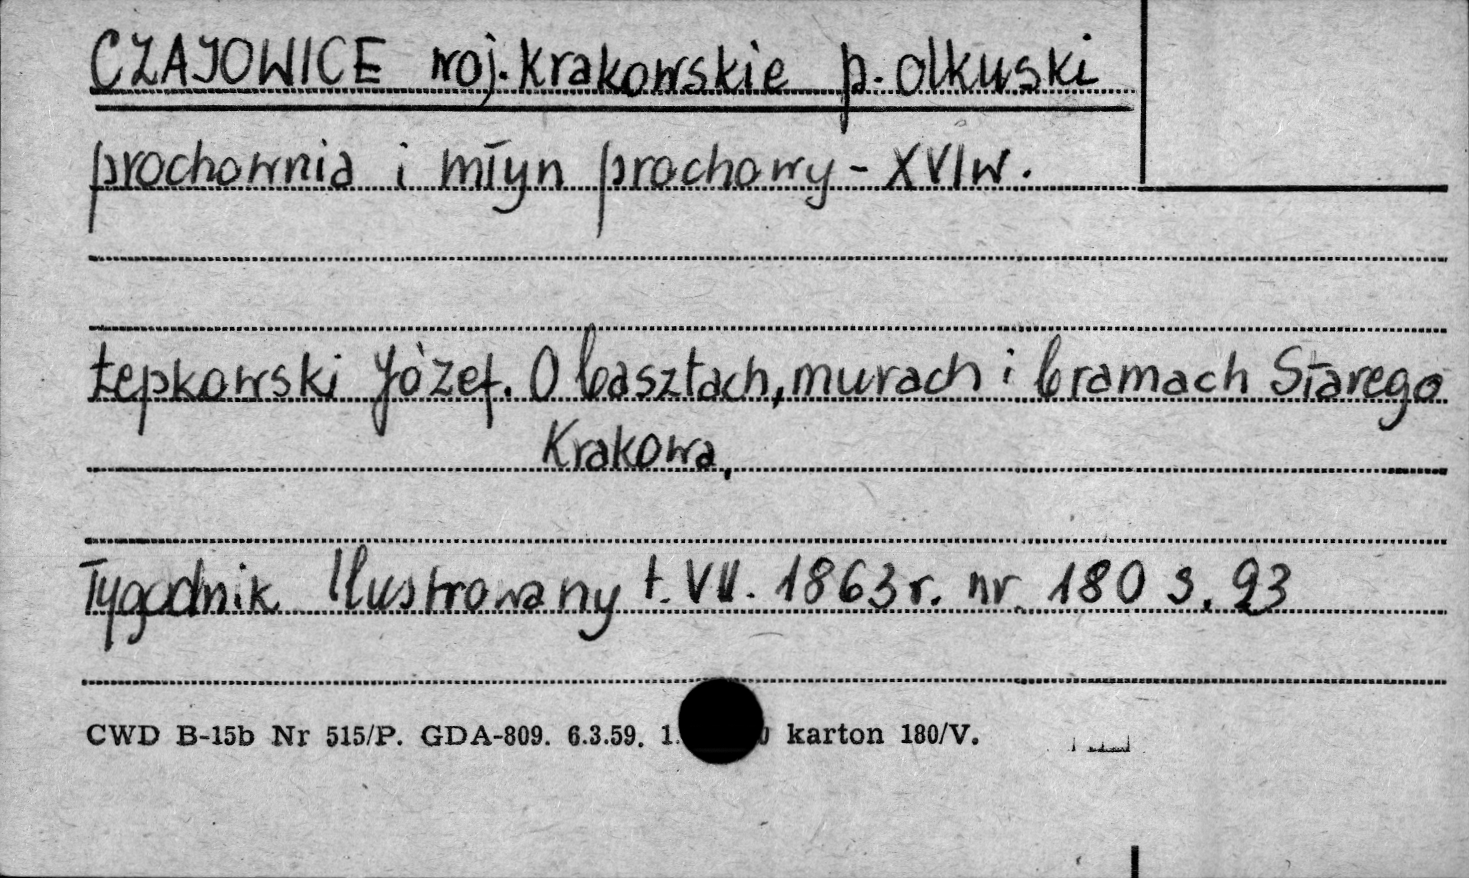 CZAJOWICE woj. krakowskie p. olkuski
prochownia i młyn prochowy - XVIw.
Łepkowski Józef. O basztach, murach i bramach Starego
Krakowa,
Tygodnik Ilustrowany t. VII. 1863 r. nr. 180 s. 93
CWD B-15b Nr 515/P. GDA-809. 6.3.59. karton 180/V.